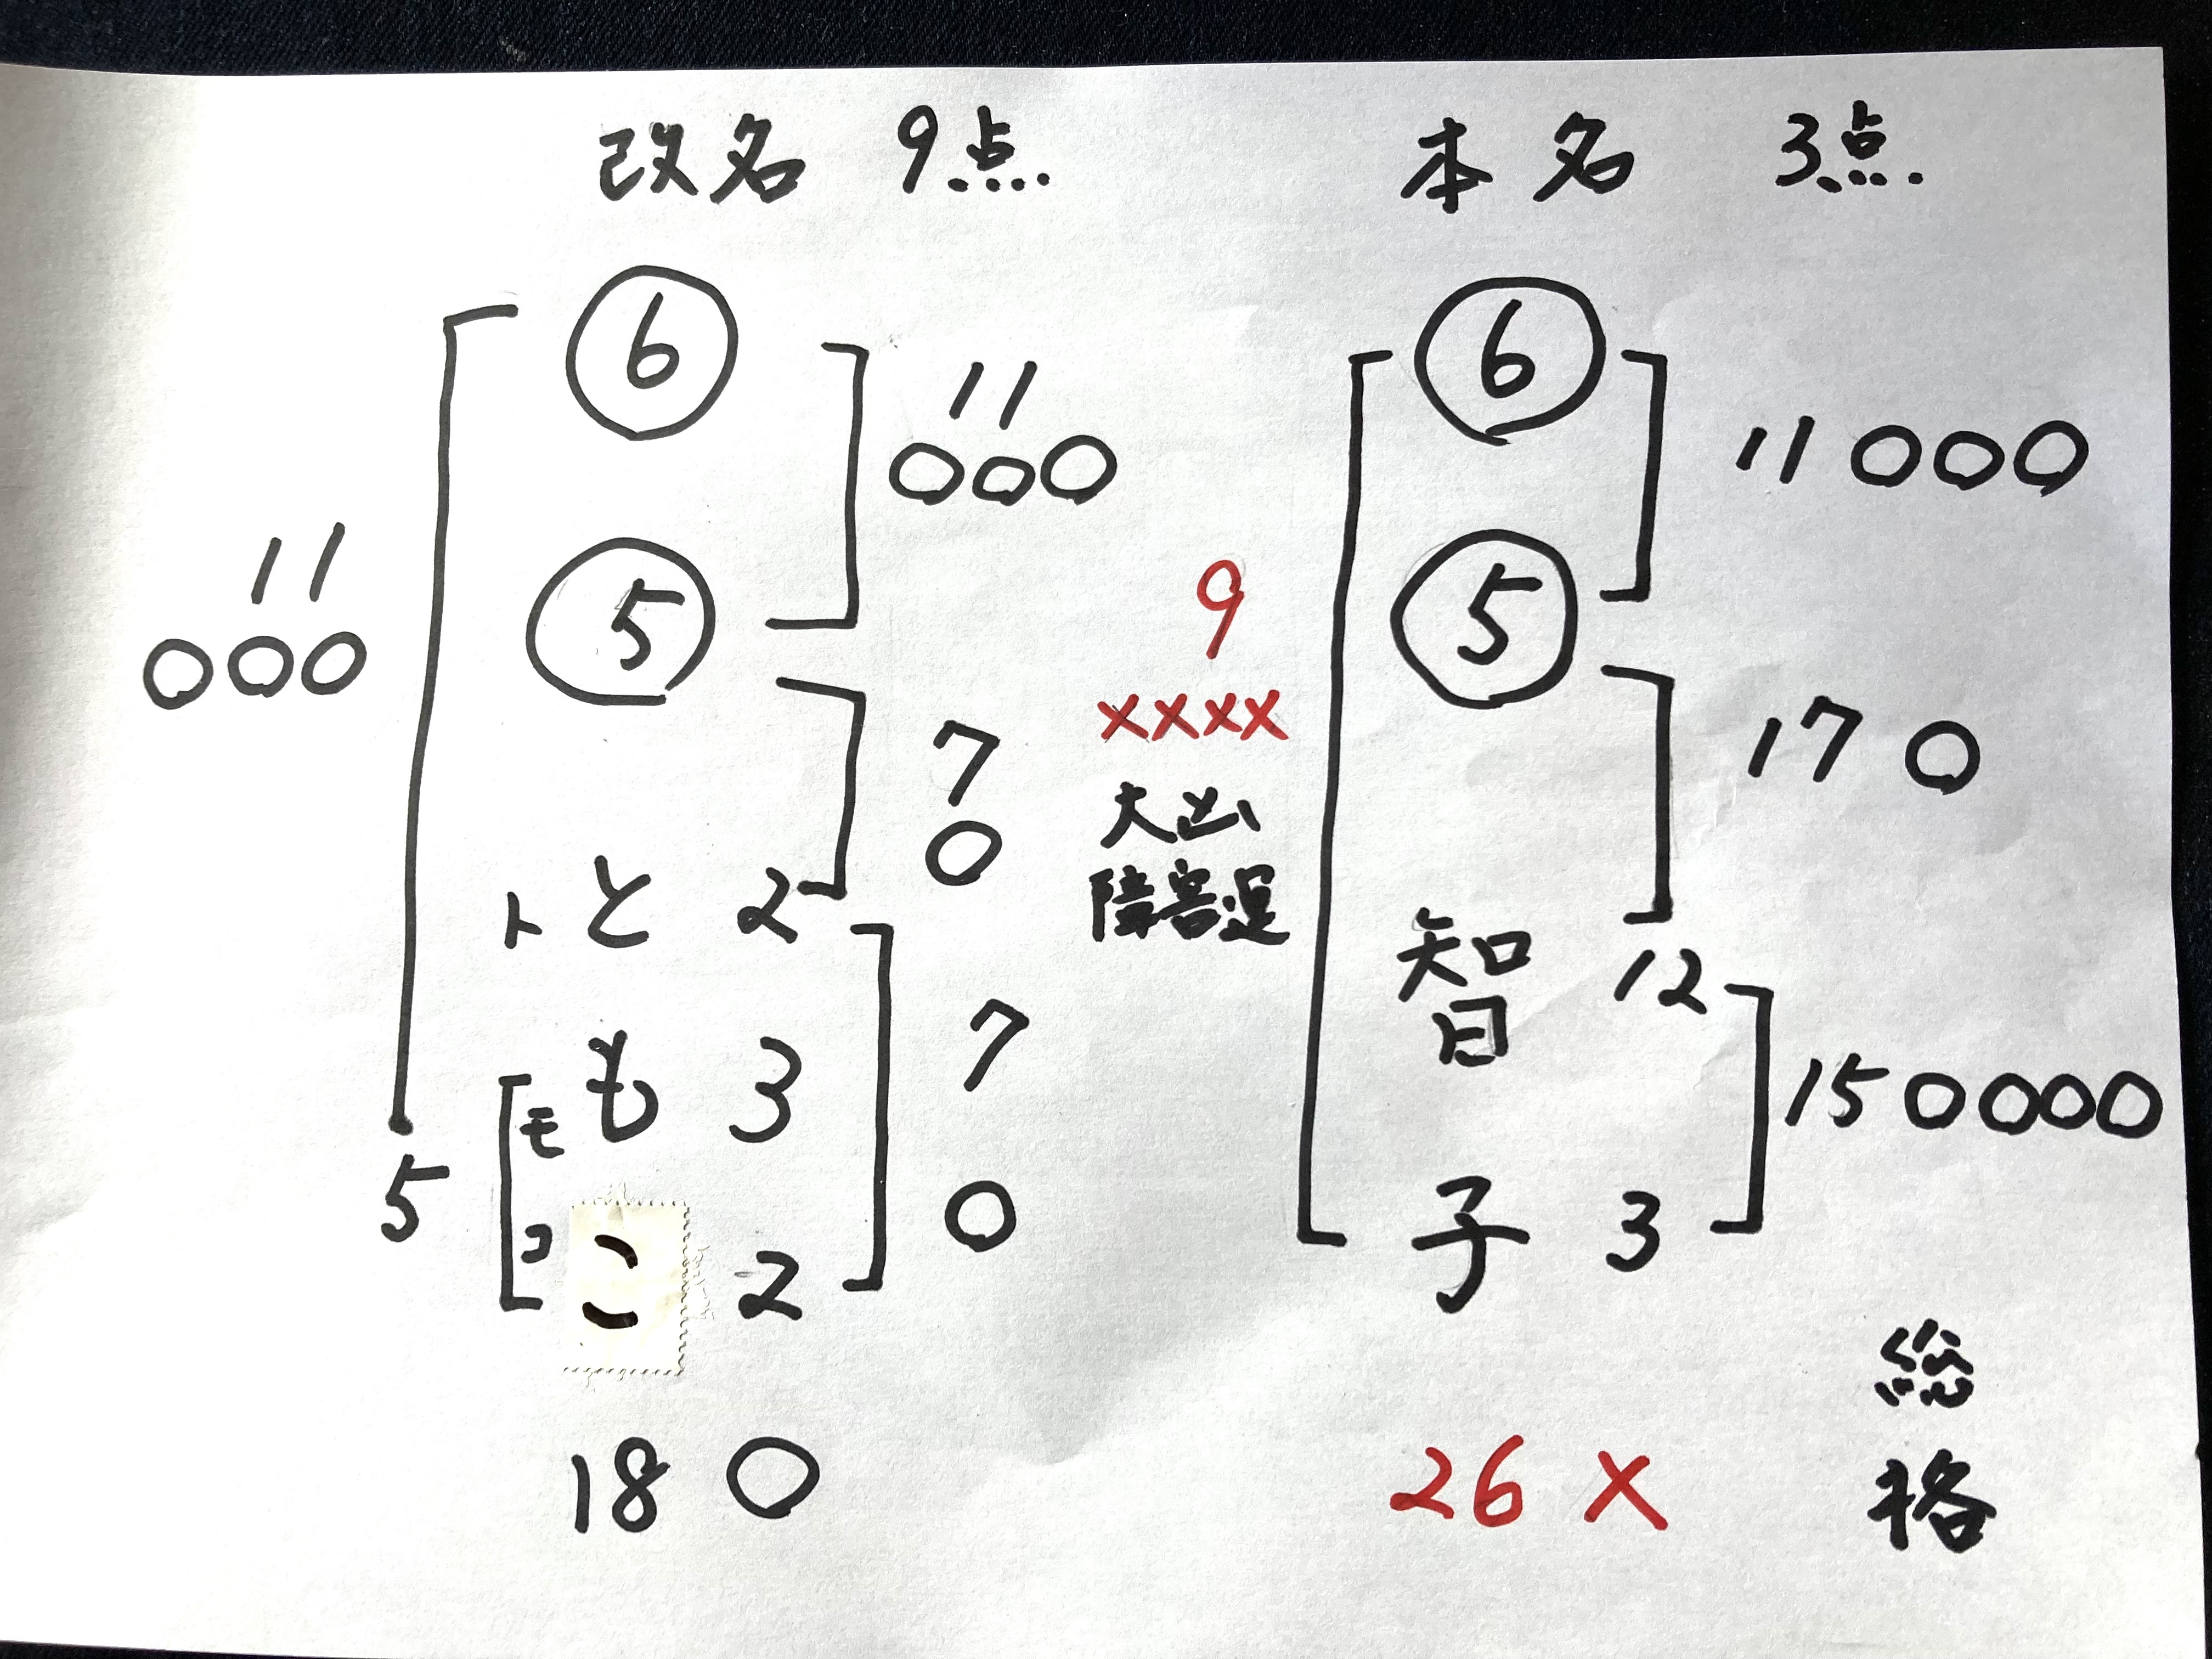 改名 9点
⑥
11
○○○
⑤
11
○○○
7
○
ト と 2
モ も 3
コ こ 2
7
○
5
18 ○
本名 3点
⑥
11 ○○○
⑤
17 ○
9
××××
大凶
障害運
智 12
子 3
15 ○○○○
26 ×
総格